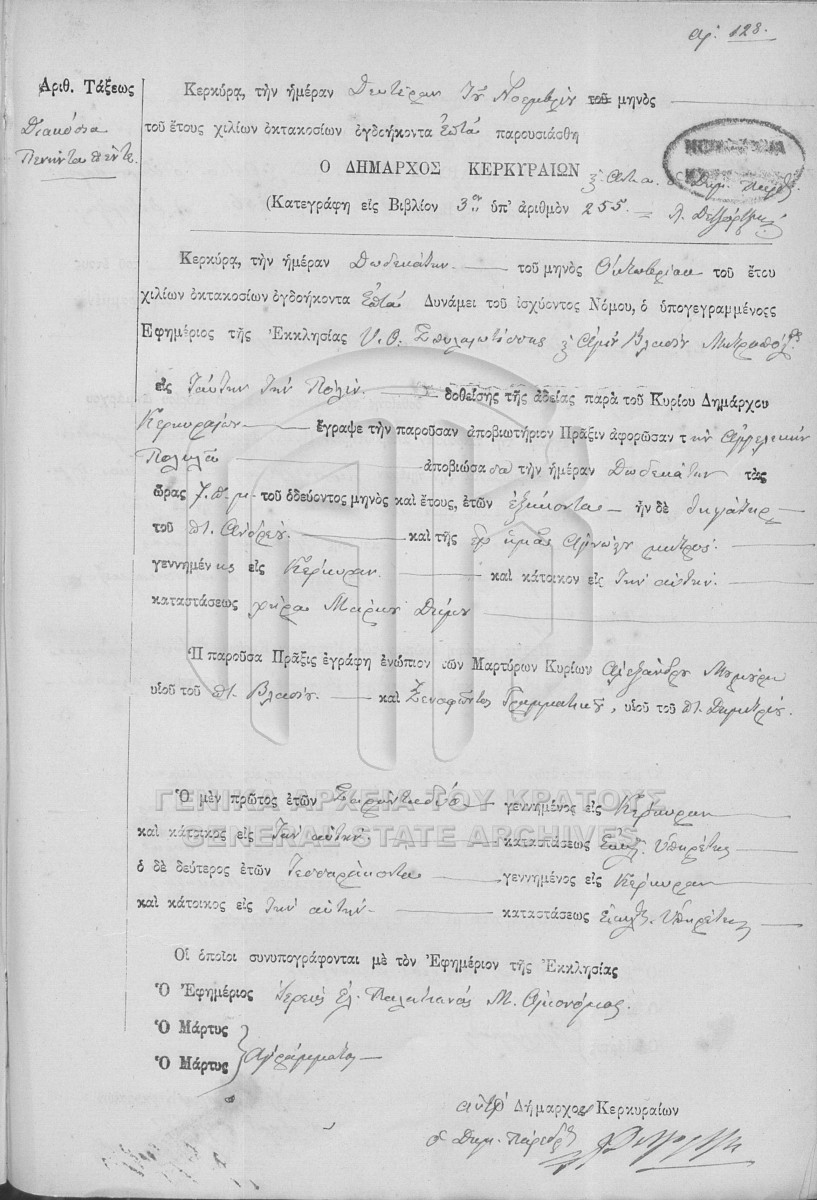 Αρ. 128.
Ἀριθ. Τάξεως
Διακόσια
Πενήντα πέντε.
Κερκύρα, τὴν ἡμέραν Δευτέραν Νοεμβρίου τοῦ μηνὸς
τοῦ ἔτους χιλίων ὀκτακοσίων ὀγδοήκοντα ἑπτὰ παρουσιάσθη
Ο ΔΗΜΑΡΧΟΣ ΚΕΡΚΥΡΑΙΩΝ
(Κατεγράφη εἰς Βιβλίον 3ον ὑπ' ἀριθμὸν 255.
Κερκύρα, τὴν ἡμέραν Δωδεκάτην τοῦ μηνὸς Ὀκτωβρίου τοῦ ἔτου
χιλίων ὀκτακοσίων ὀγδοήκοντα ἑπτὰ Δυνάμει τοῦ ἰσχύοντος Νόμου, ὁ ὑπογεγραμμένος
Ἐφημέριος τῆς Ἐκκλησίας Υ. Θ. Σπηλαιωτίσσης Βλασίου Μητροπόλεως
εἰς ταύτην τὴν Πόλιν δοθείσης τῆς ἀδείας παρὰ τοῦ Κυρίου Δημάρχου
Κερκυραίων ἔγραψε τὴν παροῦσαν ἀποβιωτήριον Πρᾶξιν ἀφορῶσαν τὴν Ἀγγελικὴν
Πολυλᾶ ἀποβιώσασα τὴν ἡμέραν Δωδεκάτην τὰς
ὥρας 7. π. μ. τοῦ ὁδεύοντος μηνὸς καὶ ἔτους, ἐτῶν ἑξήκοντα ἦν δὲ θυγάτηρ
τοῦ πτ. Ἀνδρέου καὶ τῆς ἐφ' ἡμᾶς ἀγνώστου μητρός.
γεννημένης εἰς Κέρκυραν καὶ κάτοικον εἰς τὴν αὐτήν.
καταστάσεως χήρα Μάρκου Δήμου
Ἡ παροῦσα Πρᾶξις ἐγράφη ἐνώπιον τῶν Μαρτύρων Κυρίων Ἀλεξάνδρου
υἱοῦ τοῦ πτ. Βλασίου. καὶ Ξενοφῶντος Γραμματικοῦ, υἱοῦ τοῦ πτ. Δημητρίου.
ΓΕΝΙΚΑ ΑΡΧΕΙΑ ΤΟΥ ΚΡΑΤΟΥΣ
GENERAL STATE ARCHIVES
Ὁ μὲν πρῶτος ἐτῶν Σαρανταδύο γεννημένος εἰς Κέρκυραν
καὶ κάτοικος εἰς τὴν αὐτήν. καταστάσεως Ἐκκλ. Ὑπηρέτης
ὁ δὲ δεύτερος ἐτῶν Τεσσαράκοντα γεννημένος εἰς Κέρκυραν
καὶ κάτοικος εἰς τὴν αὐτήν. καταστάσεως Ἐκκλ. Ὑπηρέτης
Οἱ ὁποῖοι συνυπογράφονται μὲ τὸν Ἐφημέριον τῆς Ἐκκλησίας
Ὁ Ἐφημέριος Ἱερεὺς Παλατιανὸς Μ. Οἰκονόμος.
Ὁ Μάρτυς
Ὁ Μάρτυς Ἀγράμματοι
Δήμαρχος Κερκυραίων
ὁ Δημ. Πάρεδρος